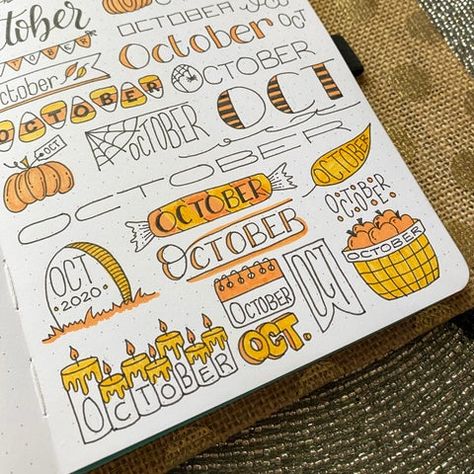 October
OCTOBER
OCTOBER
October
OCT
OCTOBER
October
OCTOBER
OCTOBER
OCT
OCT!
OCTOBER
OCTOBER
OCTOBER
OCTOBER
OCTOBER
OCTOBER
OCTOBER
OCT
2020
OCTOBER
OCT
OCTOBER
OCT.
OCTOBER